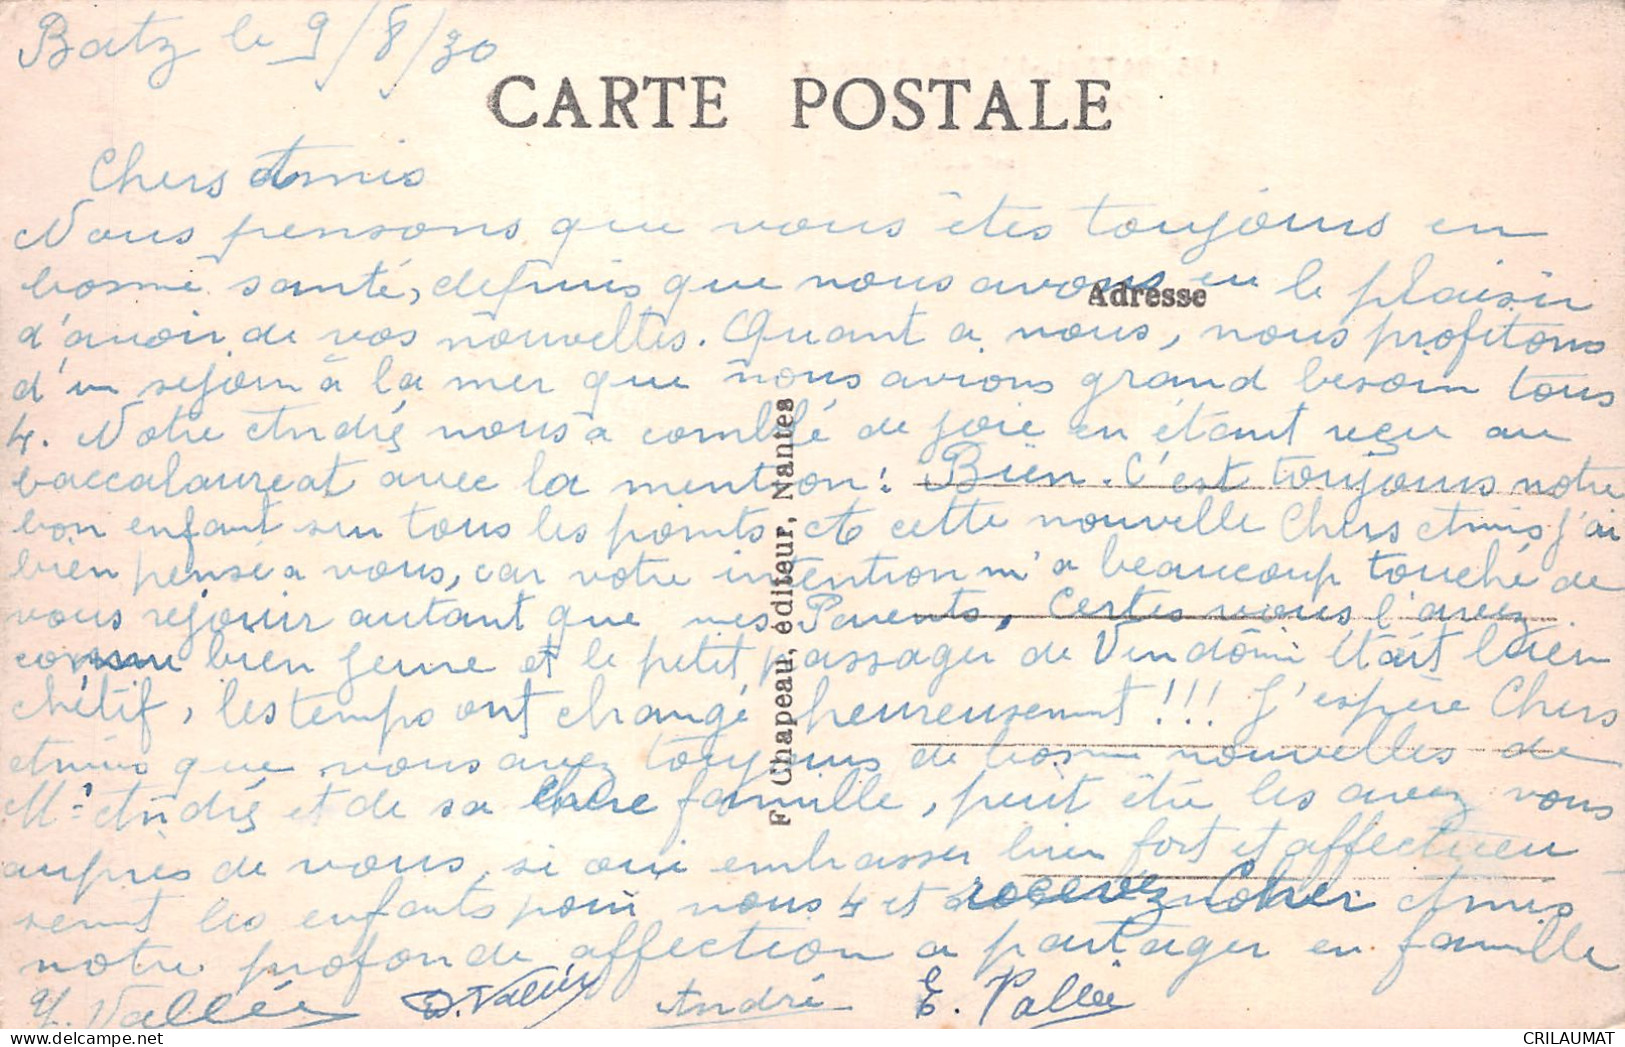 Batz le 9/8/30
CARTE POSTALE
Chers Amis
Nous pensons que vous êtes toujours en
bonne santé, depuis que nous avons eu le plaisir
Adresse
d'avoir de vos nouvelles. Quant a nous, nous profitons
d'un sejour à la mer que nous avions grand besoin tous
4. Notre André nous a comblé de joie en étant reçu au
baccalaureat avec la mention : Bien. C'est toujours notre
bon enfant sur tous les points et cette nouvelle Chers Amis j'ai
bien pensé a vous, car votre intention m'a beaucoup touché de
vous rejouir autant que mes Parents, Certes vous l'avez
connu bien jeune et le petit passager de Vendôme était bien
chétif, les temps ont changé heureusement !!! J'espère Chers
Amis que vous avez toujours de bonne nouvelles de
Mr André et de sa chere famille, peut être les avez vous
auprès de vous, si oui embrasser bien fort et affectueu
sement les enfants pour nous 4 et recevez Cher Amis
notre profonde affection a partager en famille
Y. Vallée D. Vallée André E. Vallée
F. Chapeau, éditeur, Nantes
CRILAUMAT